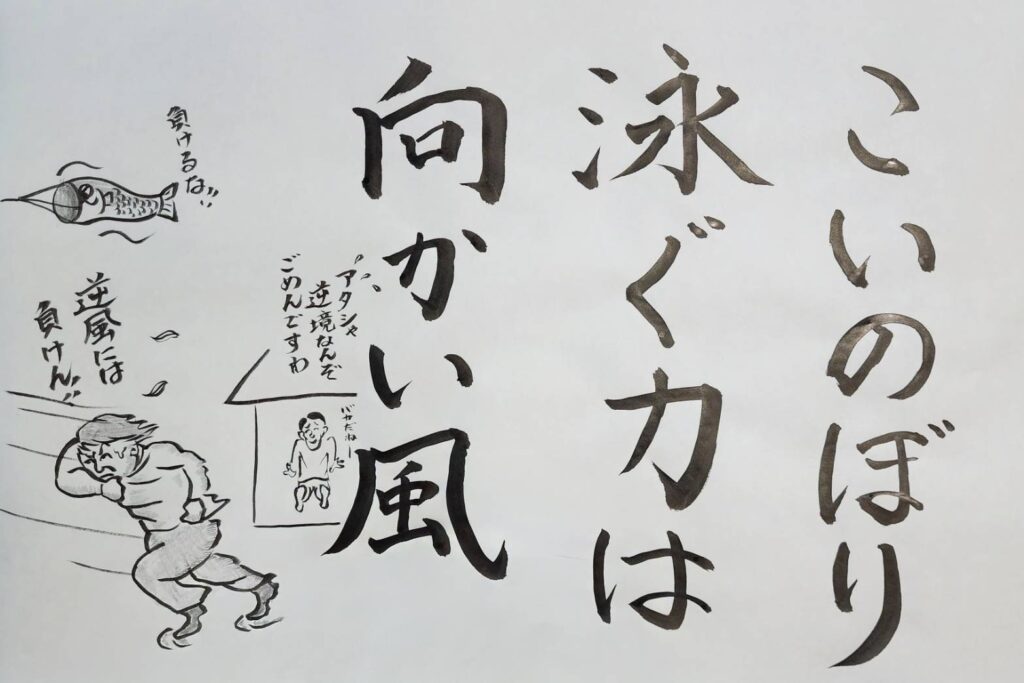 こいのぼり
泳ぐ力は
向かい風
負けるな!!
アタシャ
逆境なんぞ
ごめんですわ
バカだねー
逆風には
負けん!!